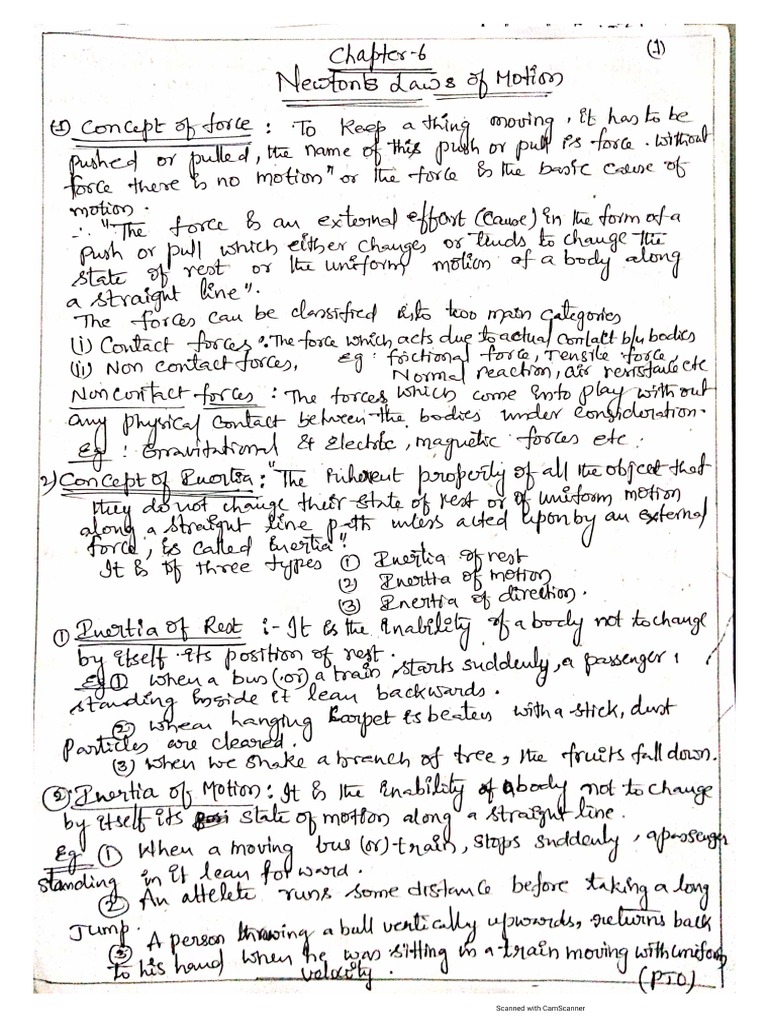 (1)
Chapter-6
Newton's Laws of Motion
(1) Concept of force : To keep a thing moving, it has to be
pushed or pulled, the name of this push or pull is force. without
force there is no motion" or the force is the basic cause of
motion.
∴ "The force is an external effort (cause) in the form of a
push or pull which either changes or tends to change the
state of rest or the uniform motion of a body along
a straight line".
The forces can be classified into two main categories
(i) Contact forces : The force which acts due to actual contact b/w bodies
(ii) Non contact forces, Eg : frictional force, Tensile force,
Normal reaction, air resistance etc
Non contact forces : The forces which come into play without
any physical contact between the bodies under consideration.
Eg : Gravitational & Electric, magnetic forces etc.
2) Concept of Inertia : "The inherent property of all the object that
they do not change their state of rest or of uniform motion
along a straight line path unless acted upon by an external
force, is called Inertia".
It is of three types (1) Inertia of rest
(2) Inertia of motion
(3) Inertia of direction.
(1) Inertia of Rest :- It is the inability of a body not to change
by itself its position of rest.
Eg (1) when a bus (or) a train, starts suddenly, a passenger
standing inside it lean backwards.
(2) whean hanging karpet is beaten with a stick, dust
particles are cleared.
(3) when we shake a branch of tree, the fruits fall down.
(2) Inertia of Motion : It is the inability of a body not to change
by itself its state of motion along a straight line.
Eg (1) When a moving bus (or) train, stops suddenly, a passenger
standing in it lean forward.
(2) An attelete runs some distance before taking a long
Jump.
(3) A person throwing a ball vertically upwards, returns back
to his hand when he was sitting in a train moving with uniform
velocity.
(PTO)
Scanned with CamScanner